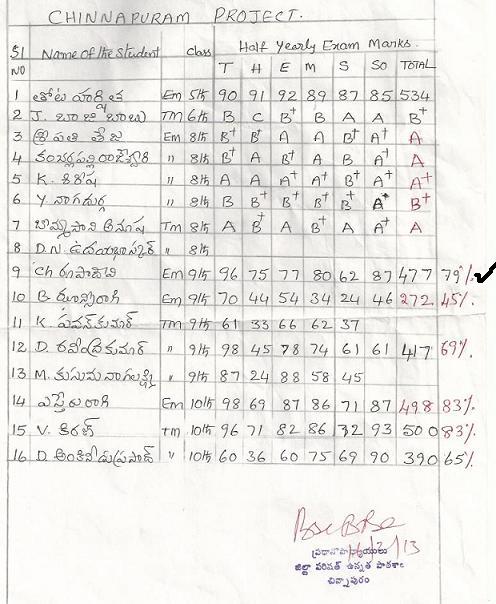 CHINNAPURAM PROJECT.
Half Yearly Exam Marks.
Sl NO Name of the Student class T H E M S So TOTAL
1 తోట హర్షిత Em 5th 90 91 92 89 87 85 534
2 J. బాజి బాబు TM 6th B C B+ B A A B+
3 శ్రీపతి తేజ Em 8th B+ B+ A A B+ A+ A
4 " 8th B+ A B+ A B A+ A
5 K. శిరీష " 8th A A A A+ B+ A+ A+
6 Y నాగదుర్గ " 8th B B+ B+ B+ B+ A+ B+
7 Tm 8th A B+ A B+ A A+ A
8 D.N. ఉదయభాస్కర్ " 8th
9 Ch రూపాదేవి Em 9th 96 75 77 80 62 87 477 79%
10 B. ఝాన్సీరాణి Em 9th 70 44 54 34 24 46 272 45%
11 K. పవన్ కుమార్ TM 9th 61 33 66 62 37
12 D. రవీంద్రకుమార్ " 9th 98 45 78 74 61 61 417 69%
13 M. కుసుమ నాగలక్ష్మి " 9th 87 24 88 58 45
14 ఎస్తేరు రాణి Em 10th 98 69 87 86 71 87 498 83%
15 V. కిరణ్ TM 10th 96 71 82 86 72 93 500 83%
16 D. అంకినీడుప్రసాద్ " 10th 60 36 60 75 69 90 390 65%
ప్రధానోపాధ్యాయులు
జిల్లా పరిషత్ ఉన్నత పాఠశాల
చిన్నాపురం